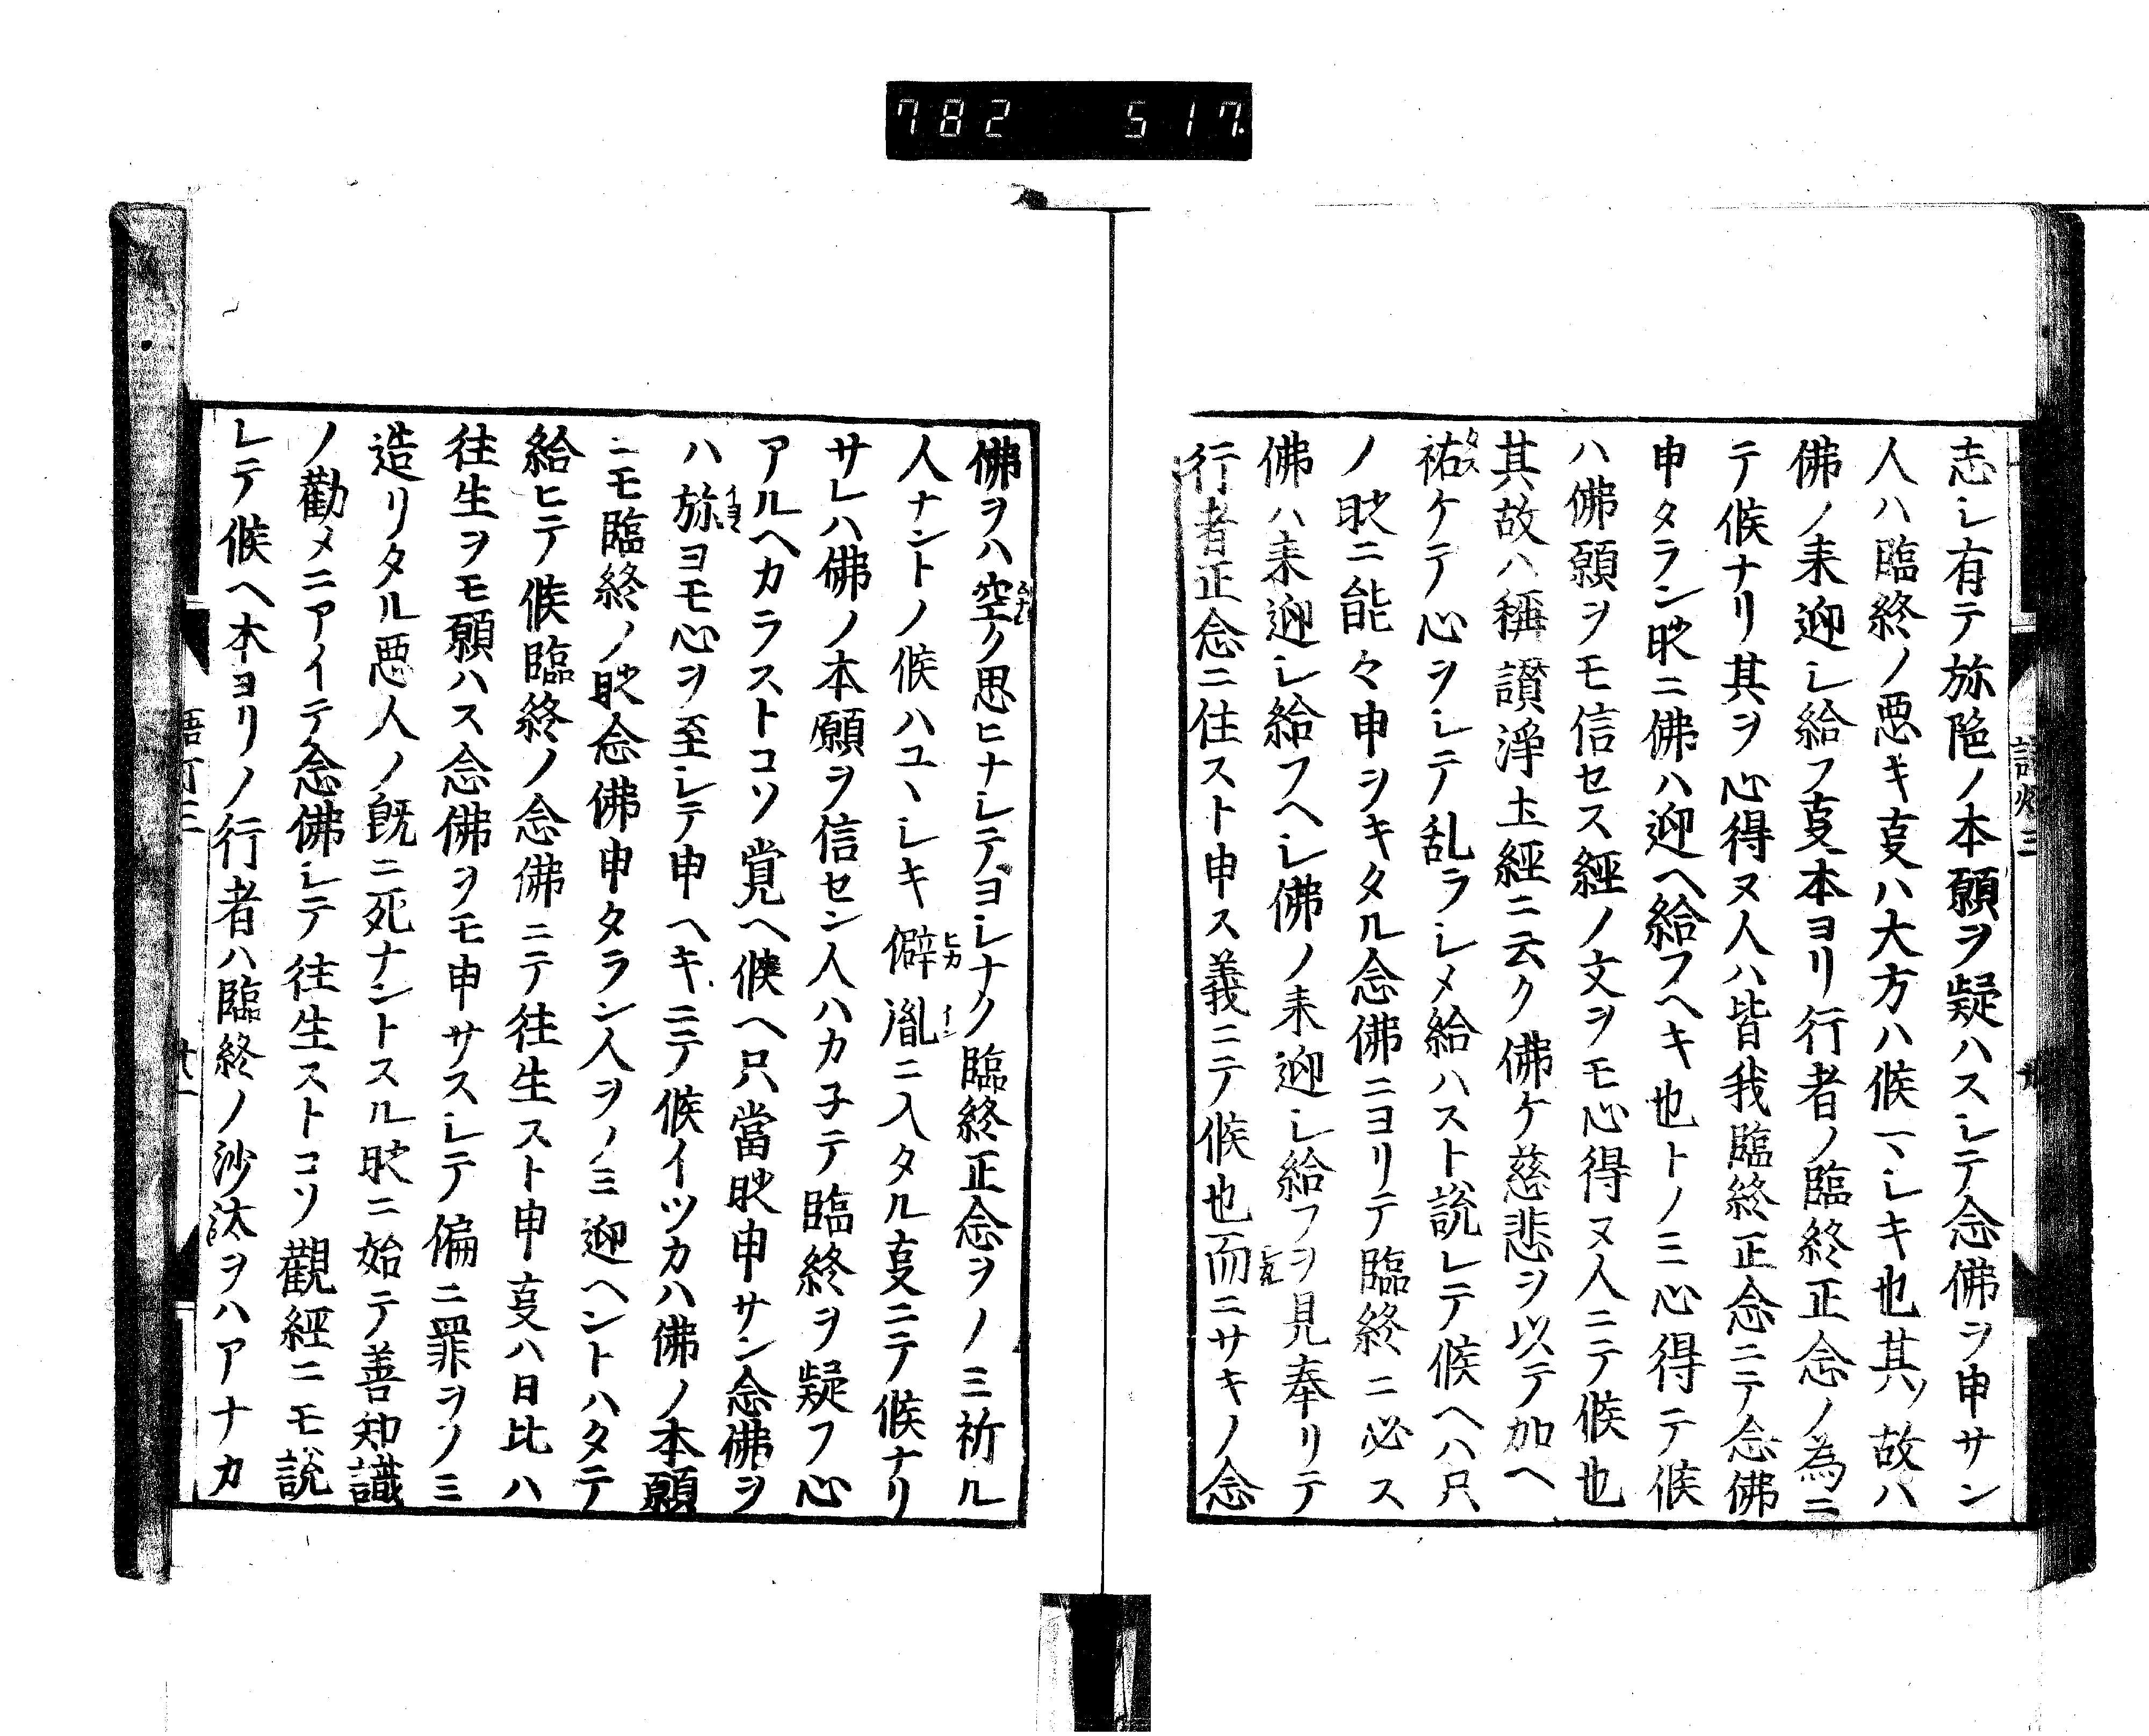 782 517.
志シ有テ旀陁ノ本願ヲ疑ハスシテ念佛ヲ申サン
人ハ臨終ノ悪キ𠮷ハ大方ハ候マシキ也其ノ故ハ
佛ノ来迎シ給フ𠮷本ヨリ行者ノ臨終正念ノ為ニ
テ候ナリ其ヲ心得ヌ人ハ皆我臨終正念ニテ念佛
申タラン時ニ佛ハ迎ヘ給フヘキ也トノミ心得テ候
ハ佛願ヲモ信セス經ノ文ヲモ心得ヌ人ニテ候也
其故ハ稱讃淨土經ニ云ク佛ケ慈悲ヲ以テ加ヘ
祐ケテ心ヲシテ乱ラシメ給ハスト説レテ候ヘハ只
ノ時ニ能々申ヲキタル念佛ニヨリテ臨終ニ必ス
佛ハ来迎シ給フヘシ佛ノ来迎シ給フヲ見奉リテ
行者正念ニ住スト申ス義ニテ候也而ニサキノ念
佛ヲハ空ク思ヒナシテヨシナク臨終正念ヲノミ祈ル
人ナントノ候ハユヽシキ僻胤ニ入タル事ニテ候ナリ
サレハ佛ノ本願ヲ信セン人ハカ子テ臨終ヲ疑フ心
アルヘカラストコソ覚ヘ候ヘ只當時申サン念佛ヲ
ハ旀ヨモ心ヲ至シテ申ヘキニテ候イツカハ佛ノ本願
ニモ臨終ノ時念佛申タラン人ヲノミ迎ヘントハタテ
給ヒテ候臨終ノ念佛ニテ往生スト申事ハ日比ハ
往生ヲモ願ハス念佛ヲモ申サスシテ偏ニ罪ヲノミ
造リタル悪人ノ既ニ死ナントスル時ニ始テ善知識
ノ勸メニアイテ念佛シテ往生ストコソ觀經ニモ説
レテ候ヘ本ヨリノ行者ハ臨終ノ沙汰ヲハアナカ